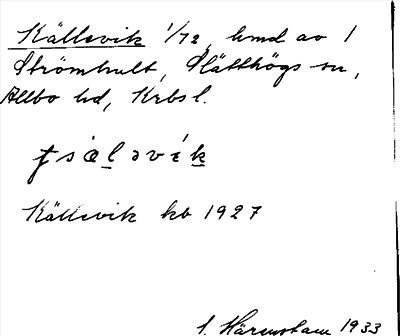 Källsvik 1/72, hmd av 1
Strömhult, Slätthögs sn,
Allbo hd, Krbs l.
ʈsäləvik
Källsvik kb 1927
1933